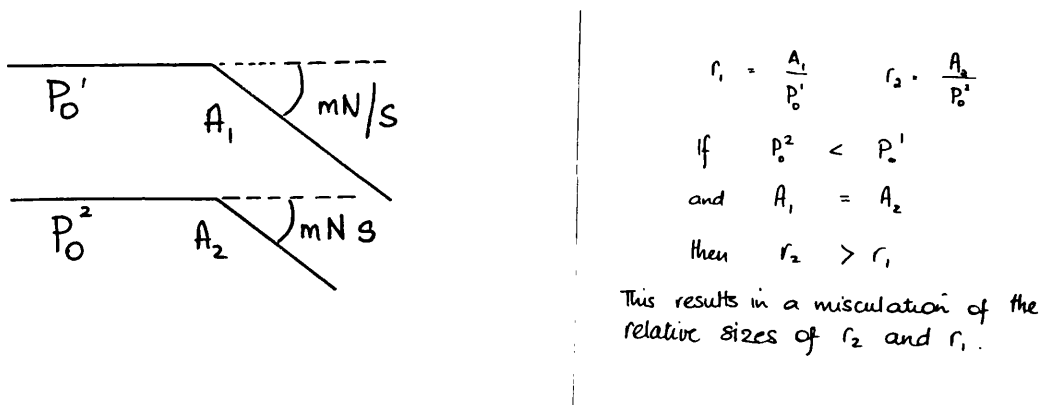 P₀¹
A₁
mN/s
P₀²
A₂
mN s
r₁ = A₁/P₀¹ r₂ = A₂/P₀²
If P₀² < P₀¹
and A₁ = A₂
then r₂ > r₁
This results in a misculation of the
relative sizes of r₂ and r₁.